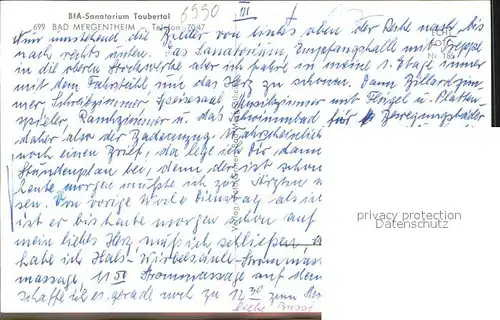 BfA-Sanatorium Taubertal
5990 III
699 BAD MERGENTHEIM - Telefon 7047
Nur umstehend die Bilder von links oben der Reihe nach bis
nach rechts unten. Das Sanatorium, Empfangshalle mit Treppe
in die oberen Stockwerke aber ich fahre in meine 1. Etage immer
mit dem Fahrstuhl um das Herz zu schonen. Dann Billardzim-
mer Schreibzimmer, Speisesaal, Musikzimmer mit Flügel u. Platten-
spieler, Rauchzimmer u. das Schwimmbad für Bewegungsbäder
daher also der Badeanzug. Wahrscheinlich
noch einen Brief, da lege ich Dir dann
Stundenplan bei, denn der ist schon
heute morgen mußte ich zur Ärztin
sen. Vorige Woche Dienstag als
ist er bis heute morgen schon auf
mein liebes Herz, muß ich schließen
habe ich Hals-Wirbelsäule-Strommas
massage, 11 50 Strommassage auf dem
schaffe ich es gerade noch zu 12 30 zum
liebe Bussi
privacy protection
Datenschutz